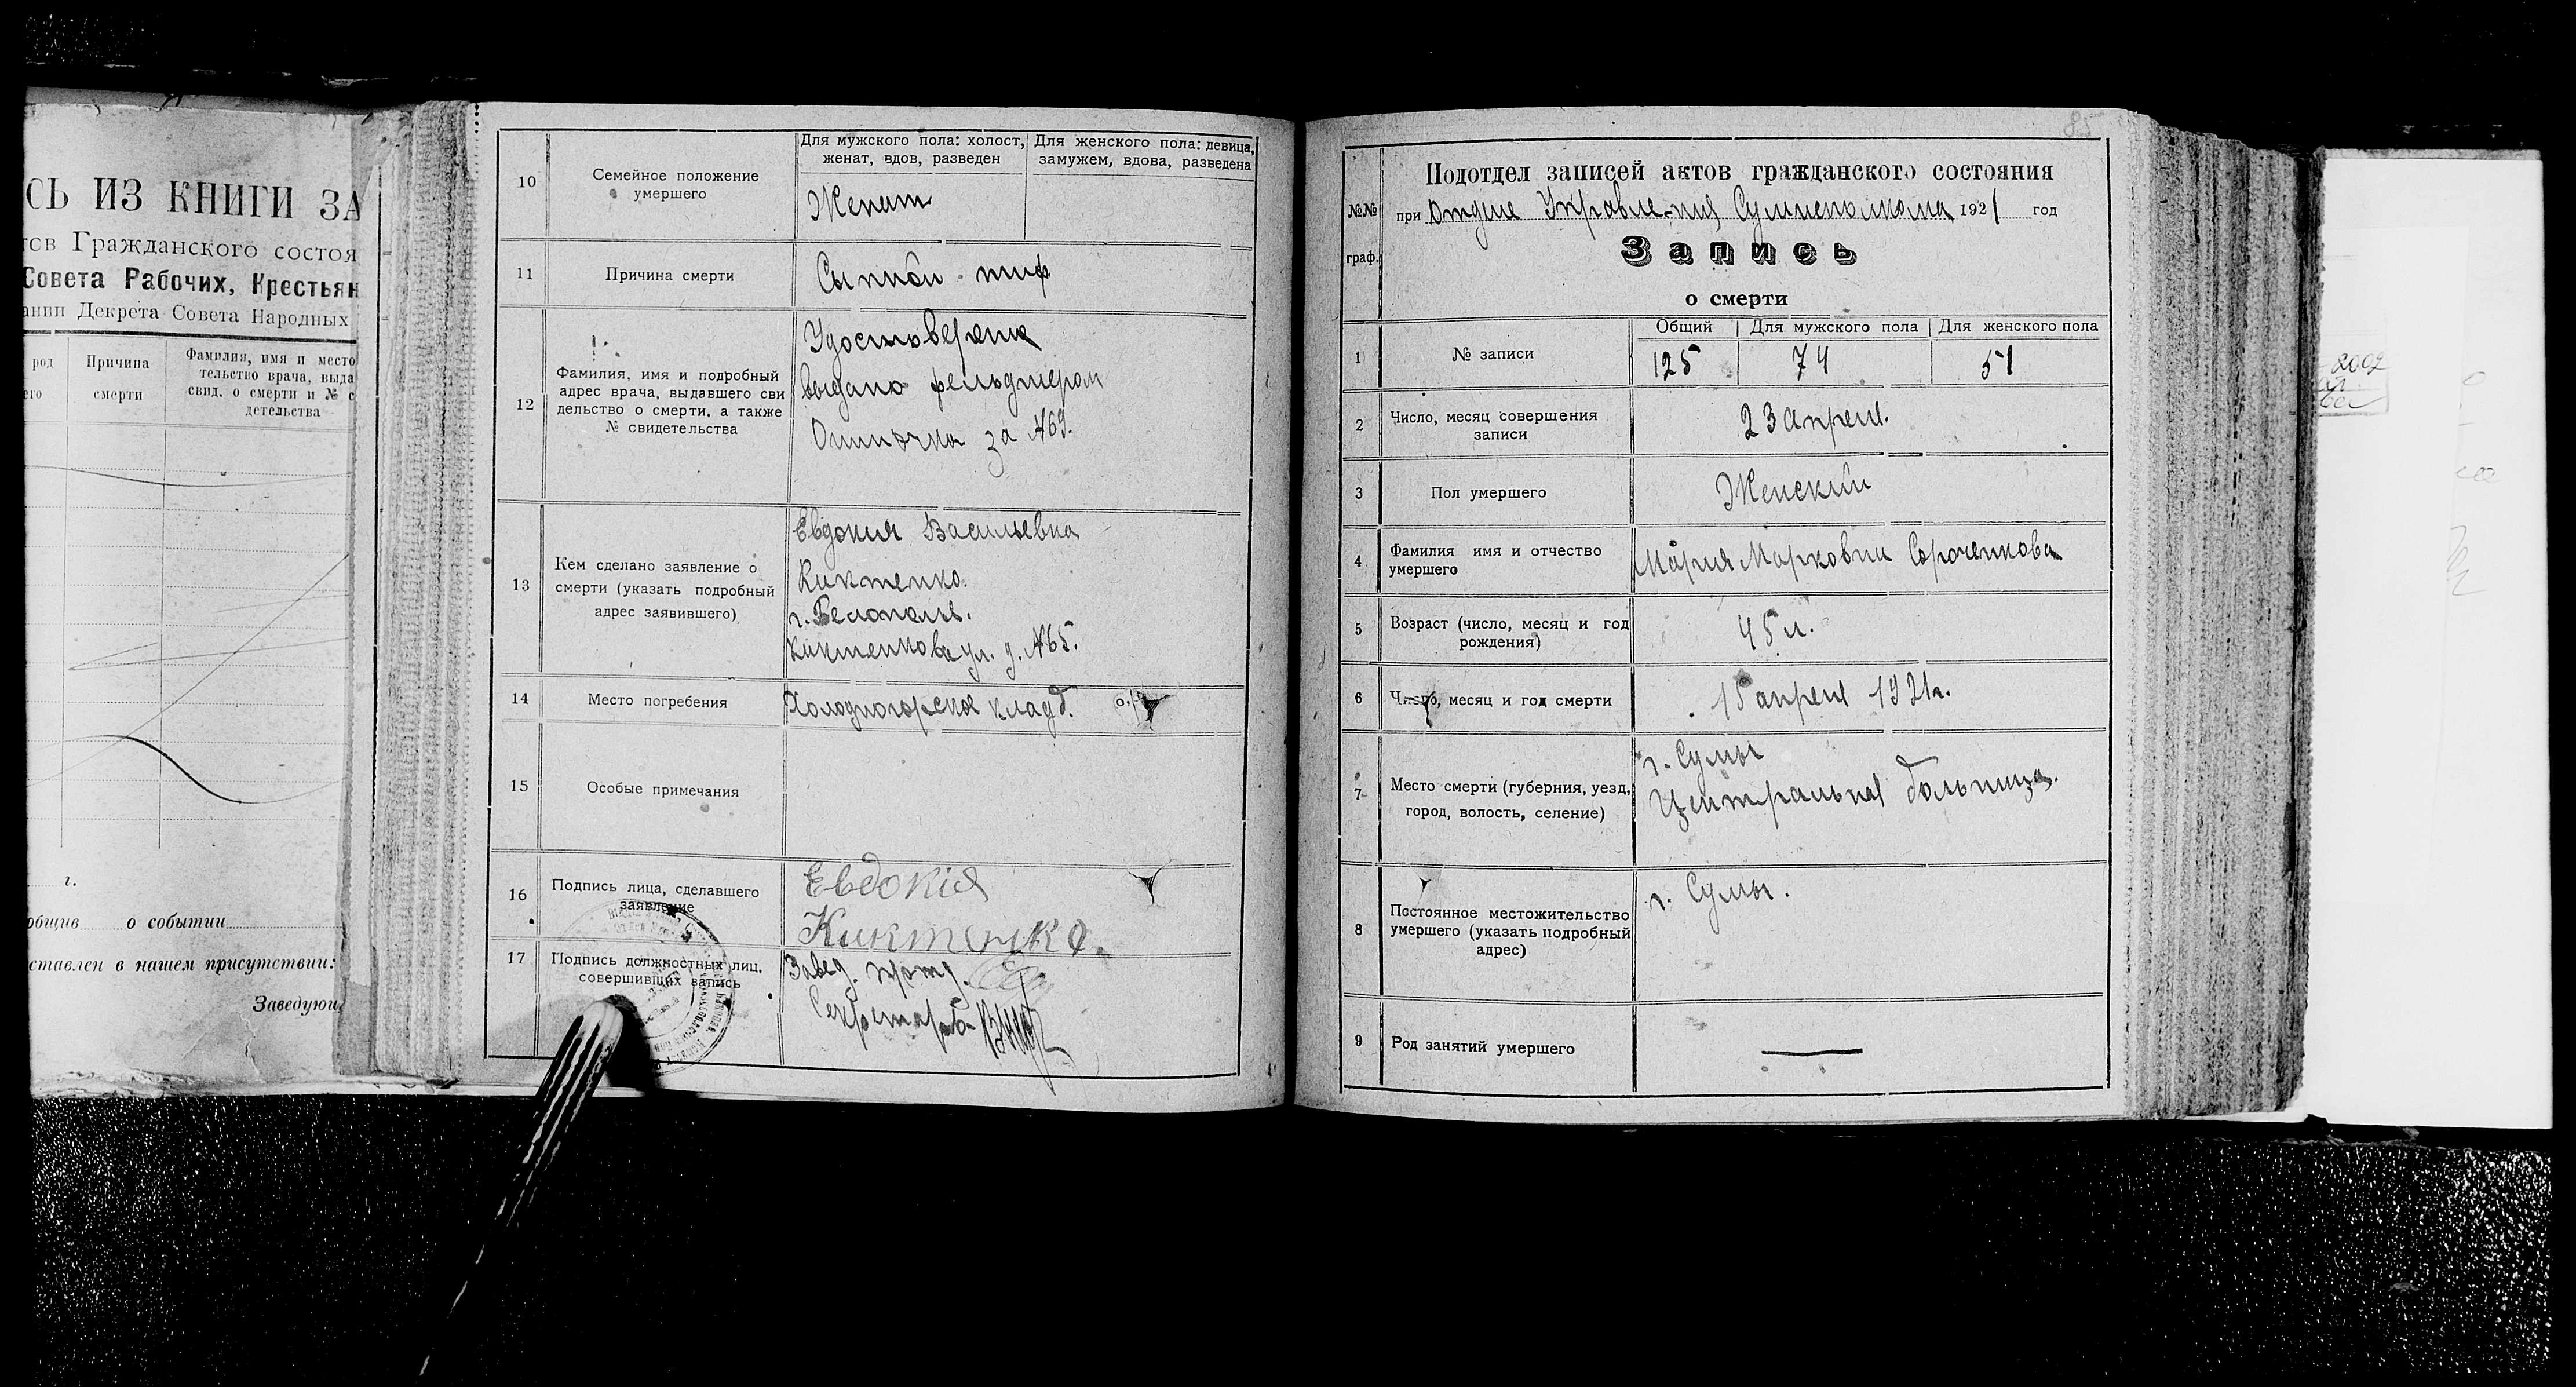 СЬ ИЗ КНИГИ ЗА
тов Гражданского состоя
Совета Рабочих, Крестьян
ании Декрета Совета Народных
род
его
Причина
смерти
Фамилия, имя и место
тельство врача, выда
свид. о смерти и № с
детельства
г.
общив о событии
ставлен в нашем присутствии:
Заведую
10
Семейное положение
умершего
Для мужского пола: холост,
женат, вдов, разведен
Для женского пола: девица,
замужем, вдова, разведена
Женат
11
Причина смерти
Сыпной тиф
12
Фамилия, имя и подробный
адрес врача, выдавшего сви
дельство о смерти, а также
№ свидетельства
Удостоверение
выдано фельдшером
за №69.
13
Кем сделано заявление о
смерти (указать подробный
адрес заявившего)
Евдокия Васильевна
Киктенко.
г. Белополье.
Киктенкова ул. д. №65.
14
Место погребения
Холодногорское кладб.
15
Особые примечания
16
Подпись лица, сделавшего
заявление
Евдокія
Киктенко.
17
Подпись должностных лиц,
совершивших запись
Завед. п/отд.
Секретарь
85
№№
граф.
Подотдел записей актов гражданского состояния
при Отделе Управле-ния Сумисполкома 1921 год
Запись
о смерти
1
№ записи
Общий
Для мужского пола
Для женского пола
125
74
51
2
Число, месяц совершения
записи
23 апреля.
3
Пол умершего
Женский
4
Фамилия имя и отчество
умершего
Мария Марковна Сороченкова
5
Возраст (число, месяц и год
рождения)
45 л.
6
Число, месяц и год смерти
15 апреля 1921г.
7
Место смерти (губерния, уезд,
город, волость, селение)
г. Сумы
Центральная больница.
8
Постоянное местожительство
умершего (указать подробный
адрес)
г. Сумы.
9
Род занятий умершего
2002